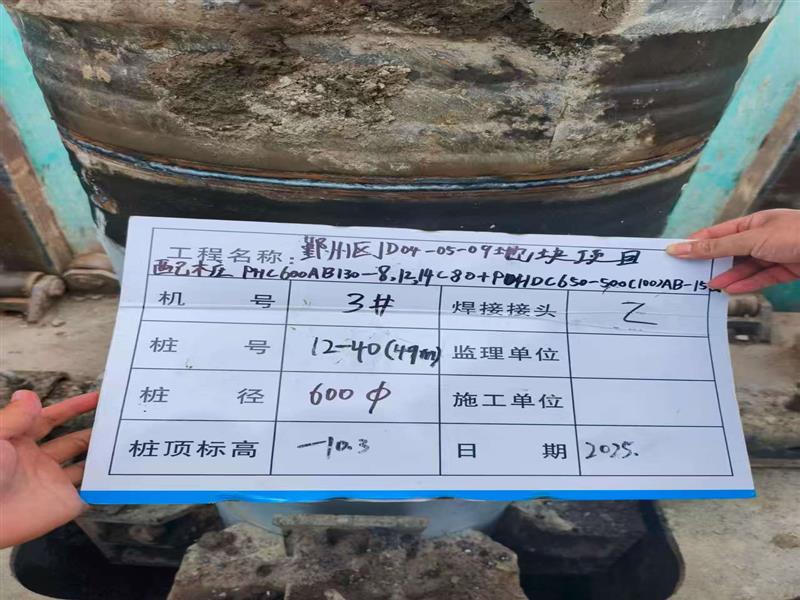 工程名称: 鄞州区JD04-05-09地块项目
PHC600AB130-8,12,14C80+PHDC650-500(100)AB-15
机 号 3# 焊接接头 乙
桩 号 12-40(49m) 监理单位
桩 径 600φ 施工单位
桩顶标高 -10.3 日 期 2025.